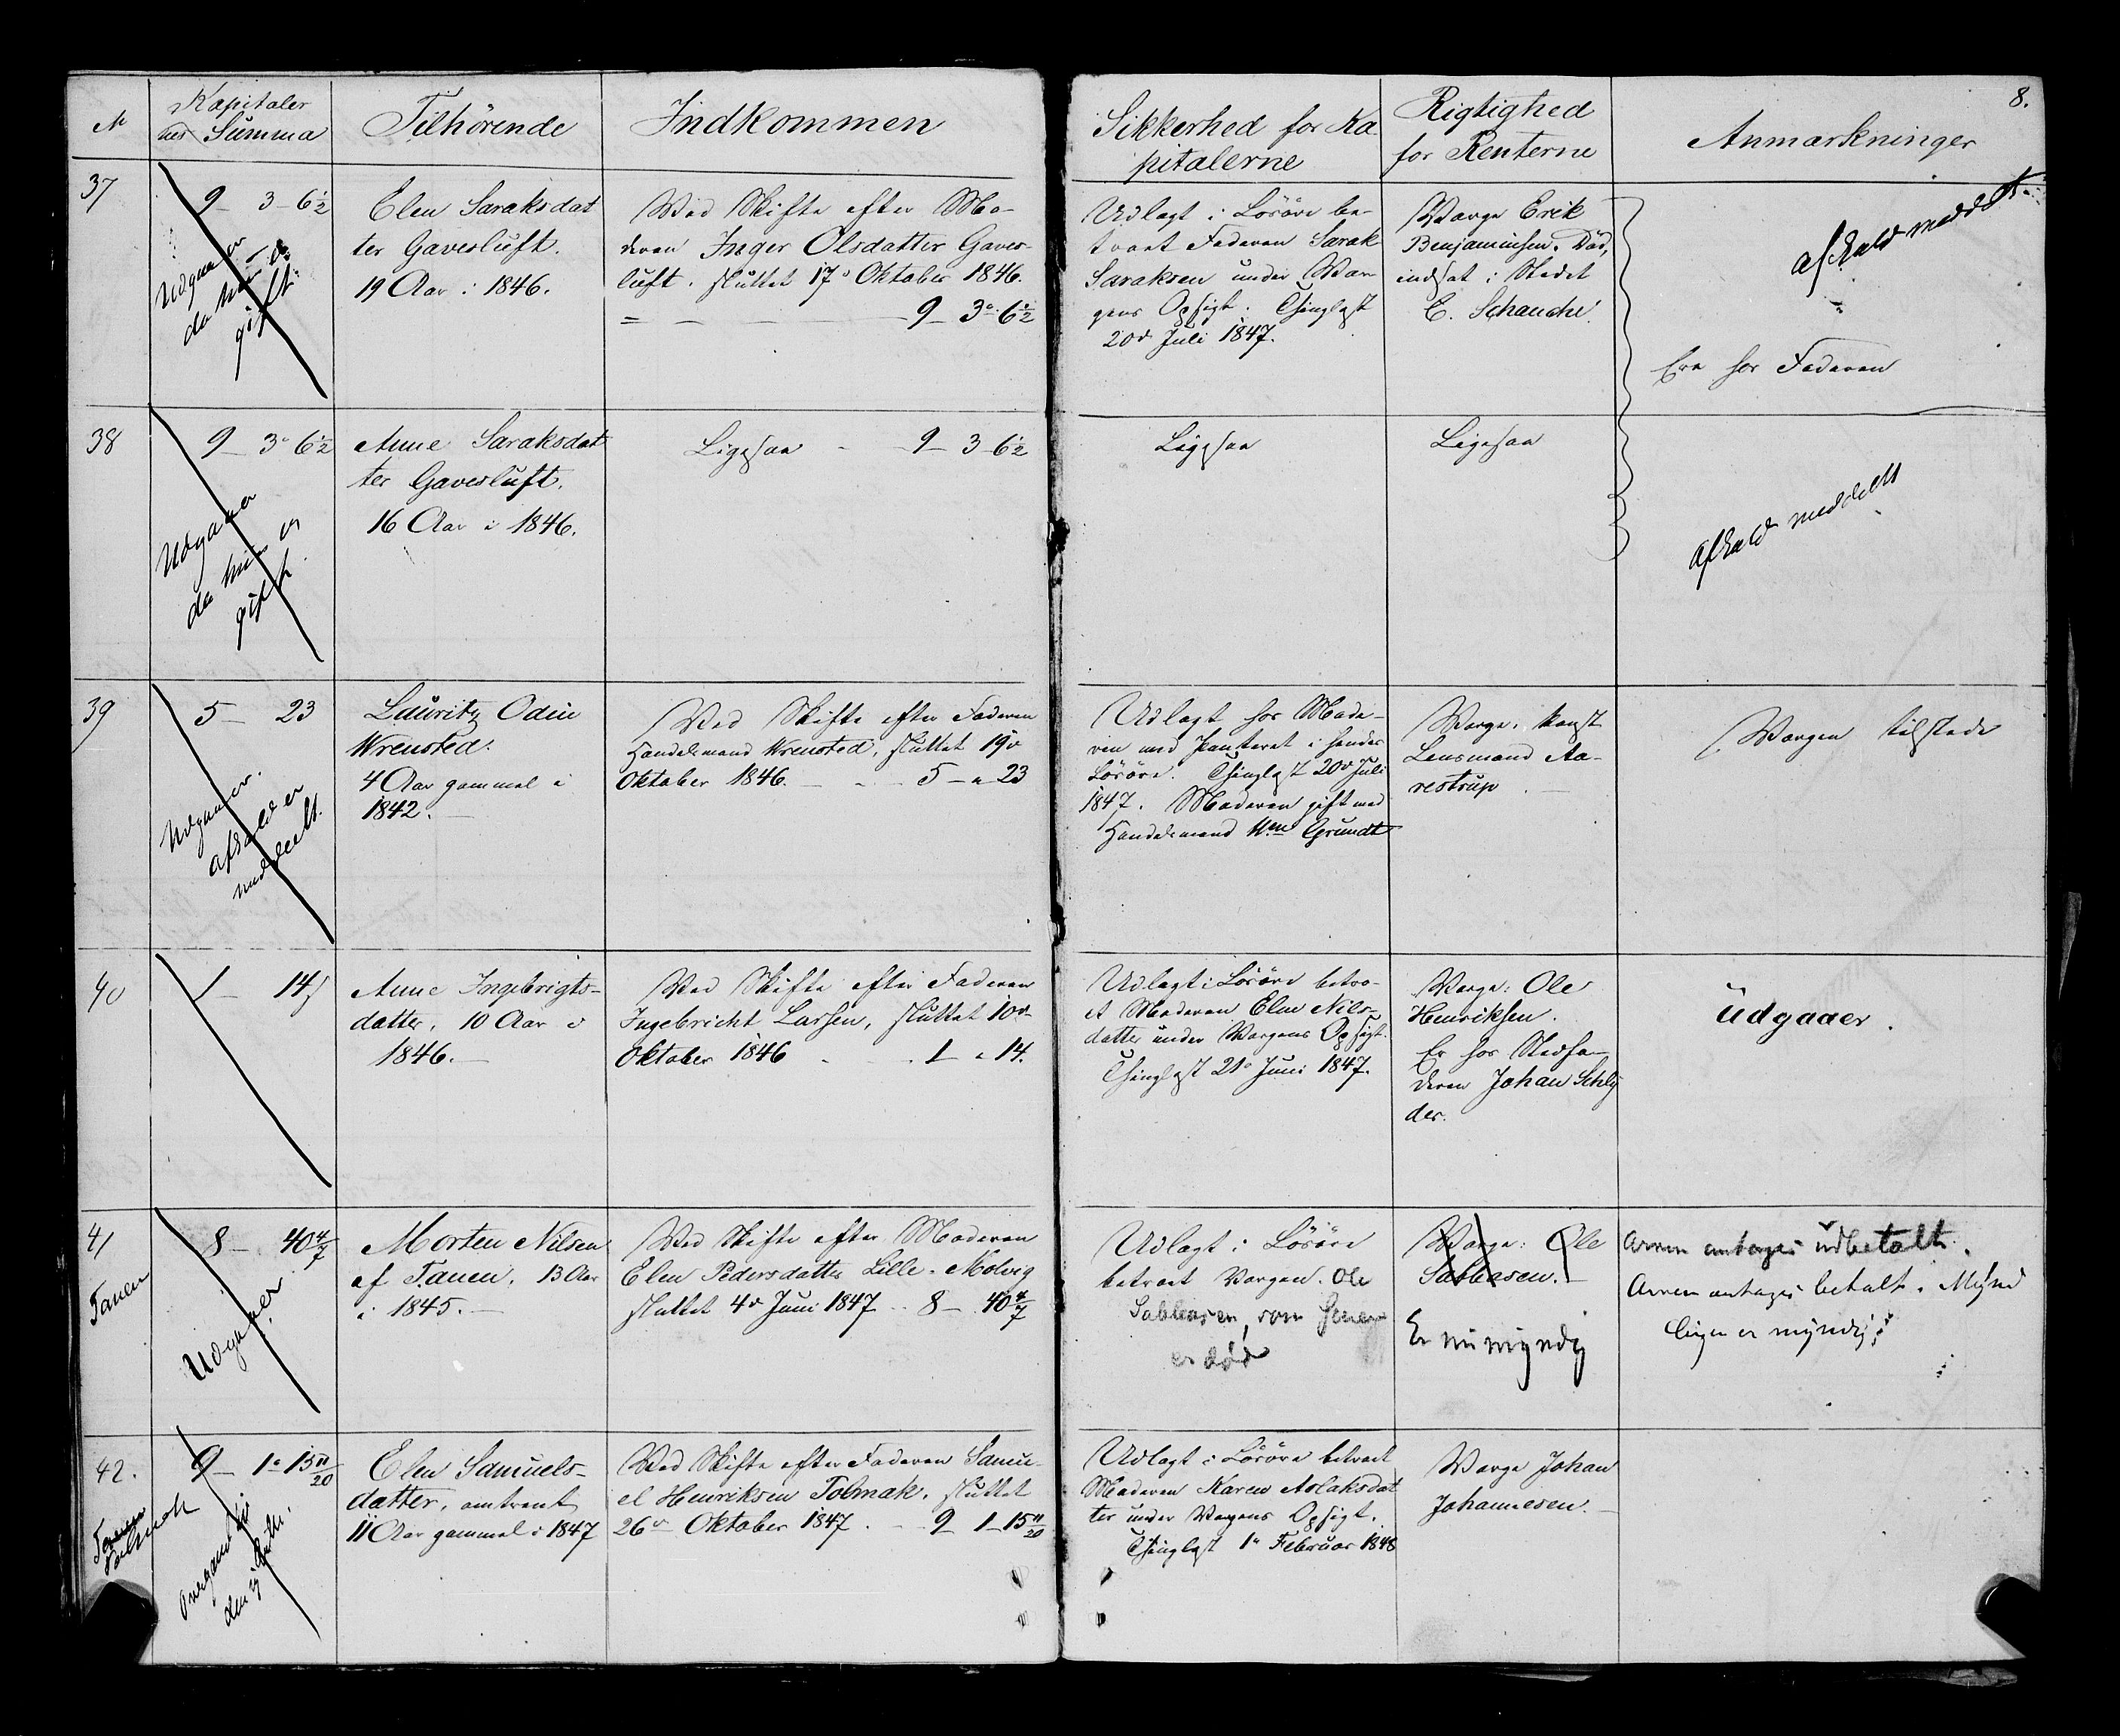 8.
№
Kapitaler
nes Summa
Tilhörende
Indkommen
Sikkerhed for Ka
pitalerne
Rigtighed
for Renterne
Anmærkninger
37
9 – 3 – 6½
Udgaaer
da hun er
gift
Elen Saraksdat
ter Gavesluft.
19 Aar i 1846.
Ved Skifte efter Mo-
deren Inger Olsdatter Gaves-
luft. sluttet 17de Oktober 1846.
9 – 3 – 6½
Udlagt i Lösöre be-
troet Faderen Sarak
Saraksen under Vær-
gens Opsigt. Thinglæst
20de Juli 1847.
Værge Erik
Benjaminsen. Död,
indsat i Stedet
C. Schanche.
afkald meddelt
Ere hos Faderen
38
9 – 3 – 6½
Udgaaer
da hun er
gift
Anne Saraksdat
ter Gavesluft.
16 Aar i 1846.
Ligesaa – 9 – 3 – 6½
Ligesaa
Ligesaa
Afkald meddelt
39
5 – 23
Udgaaer.
afkald er
meddeelt.
Lauritz Odin
Wrensted.
4 Aar gammel i
1842.
Ved Skifte efter Faderen
Handelsmand Wrensted, sluttet 19de
Oktober 1846. – 5 – " 23
Udlagt hos Mode-
ren med Panteret i hendes
Lösöre. Thinglæst 20de Juli
1847. Moderen gift med
Handelsmand Wm Grundt
Værge: konst
Lensmand Aa-
restrup.
Værgen tilstede
40
1 – 14
Anne Ingebrigts-
datter, 10 Aar i
1846.
Ved Skifte efter Faderen
Ingebricht Larsen, sluttet 10de
Oktober 1846 . 1 " 14.
Udlagt i Lösöre betro-
et Moderen Elen Nils-
datter under Værgens Opsigt.
Thinglæst 21de Juni 1847.
Værge: Ole
Henriksen.
Er hos Stedfa-
deren Johan Schly
der.
Udgaaer.
41
Tanen
8 – 40 4/7
Udgaaer
Morten Nilsen
af Tanen, 13 Aar
i 1845.
Ved Skifte efter Moderen
Elen Pedersdatter Lille-Molvig
sluttet 4de Juni 1847 – 8 – 40 4/7
Udlagt i Lösöre
betroet Værgen. Ole
Sabbasen, som
er död
Værge: Ole
Sabbasen.
Er nu myndig
Arven antages udbetalt.
Arven antages betalt. Mynd
lingen er myndig
42.
Tolmak
9 – 1 – 15 11/20
Elen Samuels-
datter, omtrent
11 Aar gammel i 1847
Ved Skifte efter Faderen Samu-
el Henriksen Tolmak, sluttet
26de Oktober 1847. – 9 – 1 – 15 11/20
Udlagt i Lösöre betroet
Moderen Karen Aslaksdat
ter under Værgens Opsigt.
Thinglæst 1ste Februar 1848
Værge Johan
Johannesen.